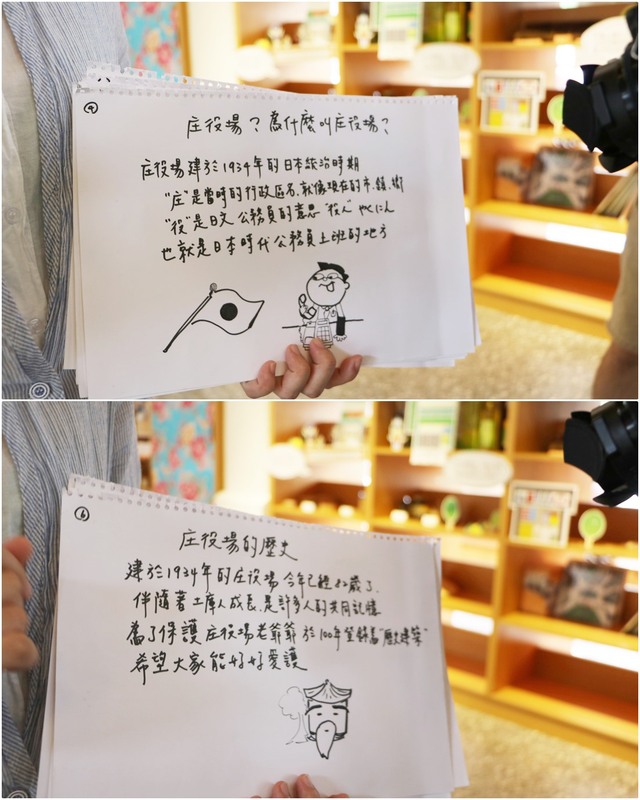 ④
庄役場？為什麼叫庄役場？
庄役場建於1934年的日本統治時期
"庄"是當時的行政區名.就像現在的市.鎮.街
"役"是日文公務員的意思"役人"やくにん
也就是日本時代公務員上班的地方
⑥
庄役場的歷史
建於1934年的庄役場今年已經82歲了.
伴隨著土庫人成長.是許多人的共同記憶
為了保護庄役場老爺爺於100年登錄為"歷史建築"
希望大家能好好愛護